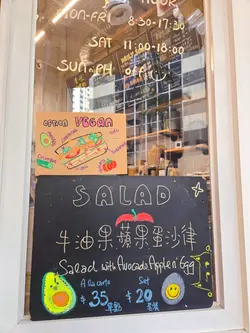 HOUR
MON-FRI 8:30-17:30
SAT 11:00-18:00
SUN n PH OFF
OPTION VEGAN
SALAD
牛油果蘋果蛋沙律
Salad with Avocado Apple n' Egg
A lla carte Set
$35 $20
單點 套餐